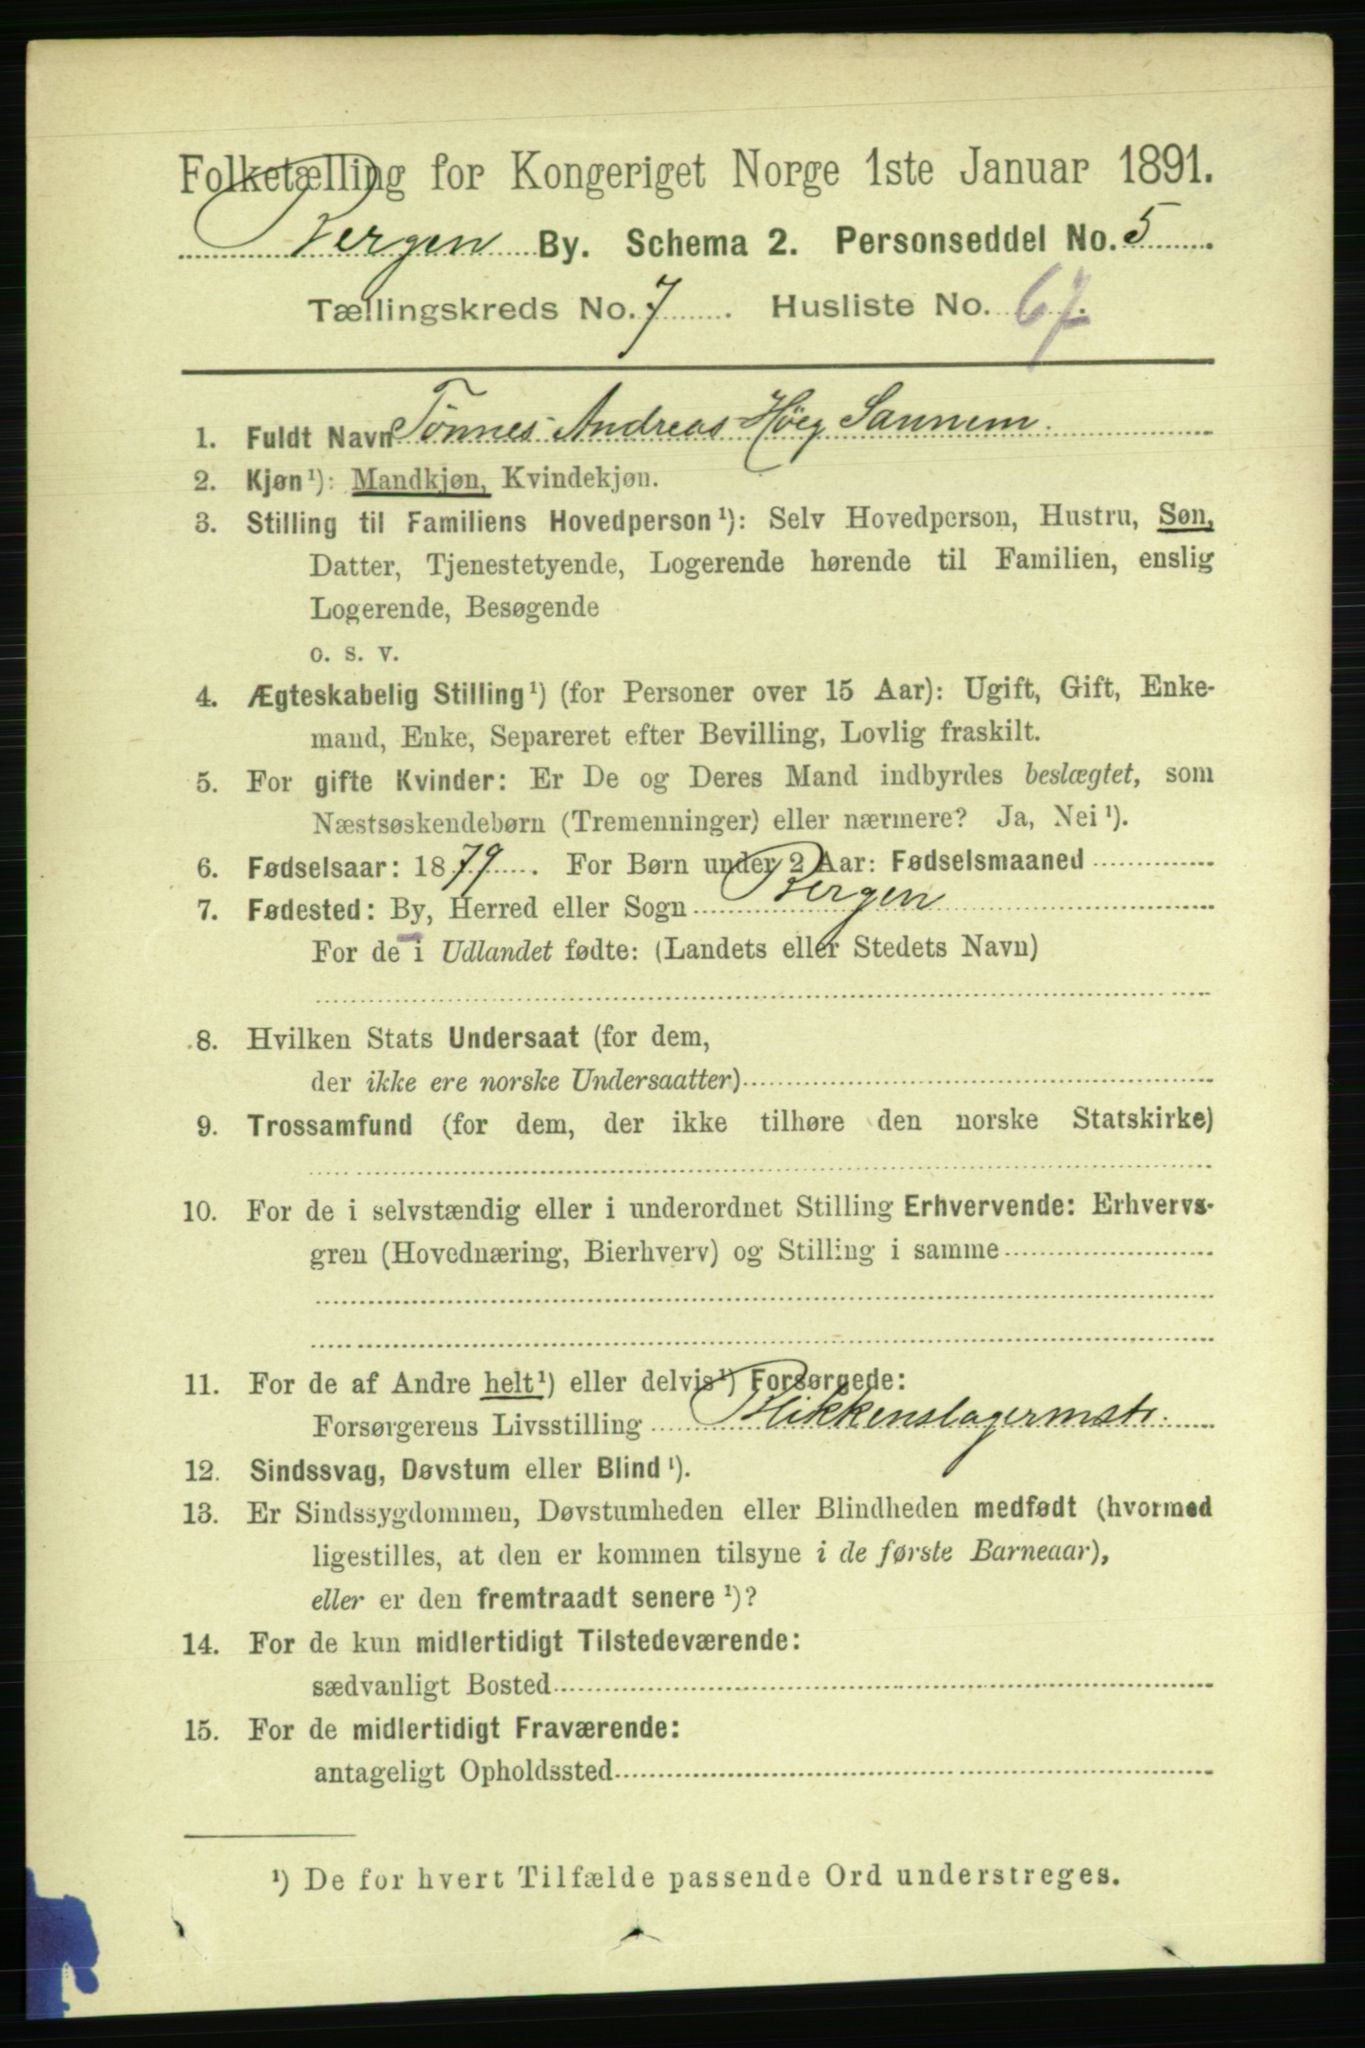 Folketælling for Kongeriget Norge 1ste Januar 1891.
Bergen By. Schema 2. Personseddel No. 5.
Tællingskreds No. 7. Husliste No. 67.
1. Fuldt Navn Tönnes Andreas Höeg Sannem.
2. Kjøn¹): Mandkjøn, Kvindekjøn.
3. Stilling til Familiens Hovedperson¹): Selv Hovedperson, Hustru, Søn,
Datter, Tjenestetyende, Logerende hørende til Familien, enslig
Logerende, Besøgende
o. s. v.
4. Ægteskabelig Stilling¹) (for Personer over 15 Aar): Ugift, Gift, Enke-
mand, Enke, Separeret efter Bevilling, Lovlig fraskilt.
5. For gifte Kvinder: Er De og Deres Mand indbyrdes beslægtet, som
Næstsøskendebørn (Tremenninger) eller nærmere? Ja, Nei¹).
6. Fødselsaar: 1879. For Børn under 2 Aar: Fødselsmaaned
7. Fødested: By, Herred eller Sogn Bergen
For de i Udlandet fødte: (Landets eller Stedets Navn)
8. Hvilken Stats Undersaat (for dem,
der ikke ere norske Undersaatter)
9. Trossamfund (for dem, der ikke tilhøre den norske Statskirke)
10. For de i selvstændig eller i underordnet Stilling Erhvervende: Erhvervs-
gren (Hovednæring, Bierhverv) og Stilling i samme
11. For de af Andre helt¹) eller delvis¹) Forsørgede:
Forsørgerens Livsstilling Blikkenslagermstr.
12. Sindssvag, Døvstum eller Blind¹).
13. Er Sindssygdommen, Døvstumheden eller Blindheden medfødt (hvormed
ligestilles, at den er kommen tilsyne i de første Barneaar),
eller er den fremtraadt senere¹)?
14. For de kun midlertidigt Tilstedeværende:
sædvanligt Bosted
15. For de midlertidigt Fraværende:
antageligt Opholdssted
¹) De for hvert Tilfælde passende Ord understreges.